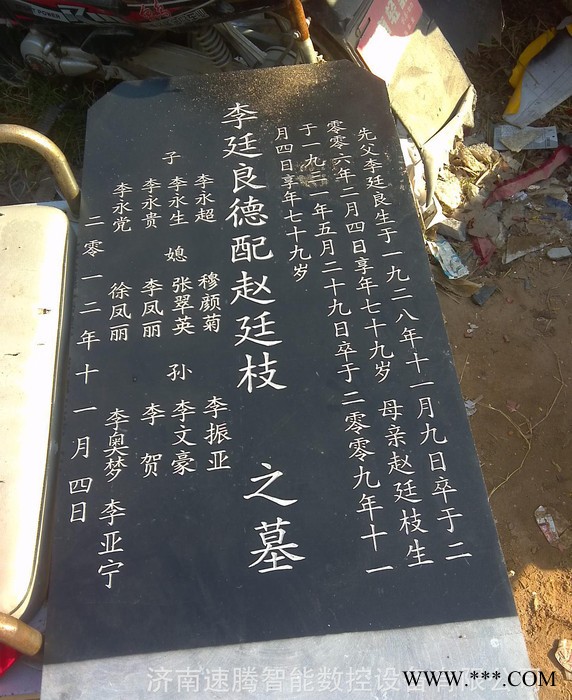 先父李廷良生于一九二八年十一月九日卒于二
零零六年二月四日享年七十九岁 母亲赵廷枝生
于一九三一年五月二十九日卒于二零零九年十一
月四日享年七十九岁
李廷良德配赵廷枝 之墓
李永超 穆颜菊 李振亚
子 李永生 媳 张翠英 孙 李文豪
李永贵 李凤丽 李贺
李永党 徐凤丽 李奥梦 李亚宁
二零一二年十一月四日
济南速腾智能数控设
www.***.com